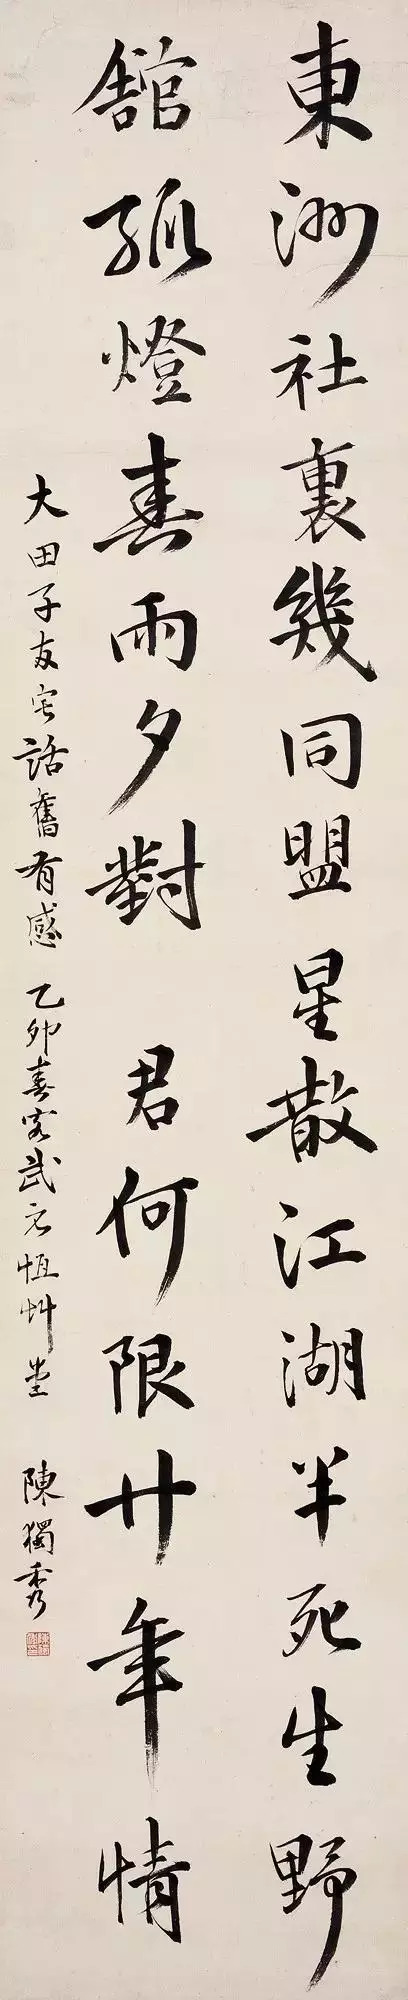 東洲社裏幾同盟星散江湖半死生野
舘孤燈春雨夕對君何限廿年情
大田子友宅話舊有感 乙卯春客武元恒艸堂 陳獨秀